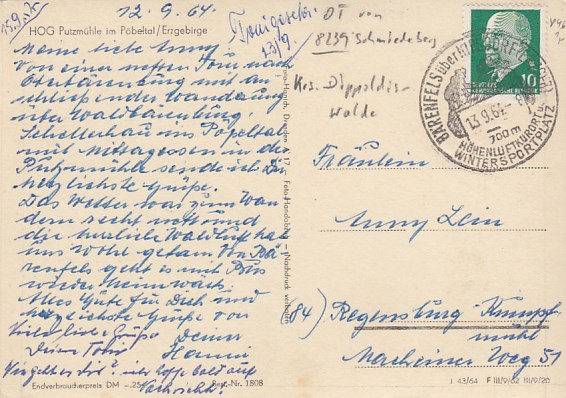 12.9.64.
HOG Putzmühle im Pöbeltal/Erzgebirge
Meine liebe Anny!
Von einer netten Tour nach
Oberbärenburg mit an-
schließender Wanderung
über Waldbärenburg,
Schellerhau ins Pöbeltal
mit Mittagessen in der
Putzmühle sende ich Dir
herzlichste Grüße.
Das Wetter war zum Wan-
dern recht nett und
die herrliche Waldluft hat
uns wohl getan. Von Bä-
renfels geht es mit Bus
wieder heimwärts.
Alles Gute für Dich und
herzlichste Grüße von
Deiner
Hanni
Viele liebe Grüße
Deine
Wie geht es Dir?
Endverbraucherpreis DM -.25
Best.-Nr. 1808
Foto-Handabzug – Nachdruck verboten
OT von
8239 Schmiedeberg
Krs. Dippoldis-
walde
10
BÄRENFELS über DIPPOLDISWALDE
13.9.64
700m
HÖHENLUFTKURORT
WINTERSPORTPLATZ
Fräulein
Anny Lein
(84) Regensburg-Kumpf-
mühl
Macheiner Weg 51
J 43/64 F III/9/62 III/9/20